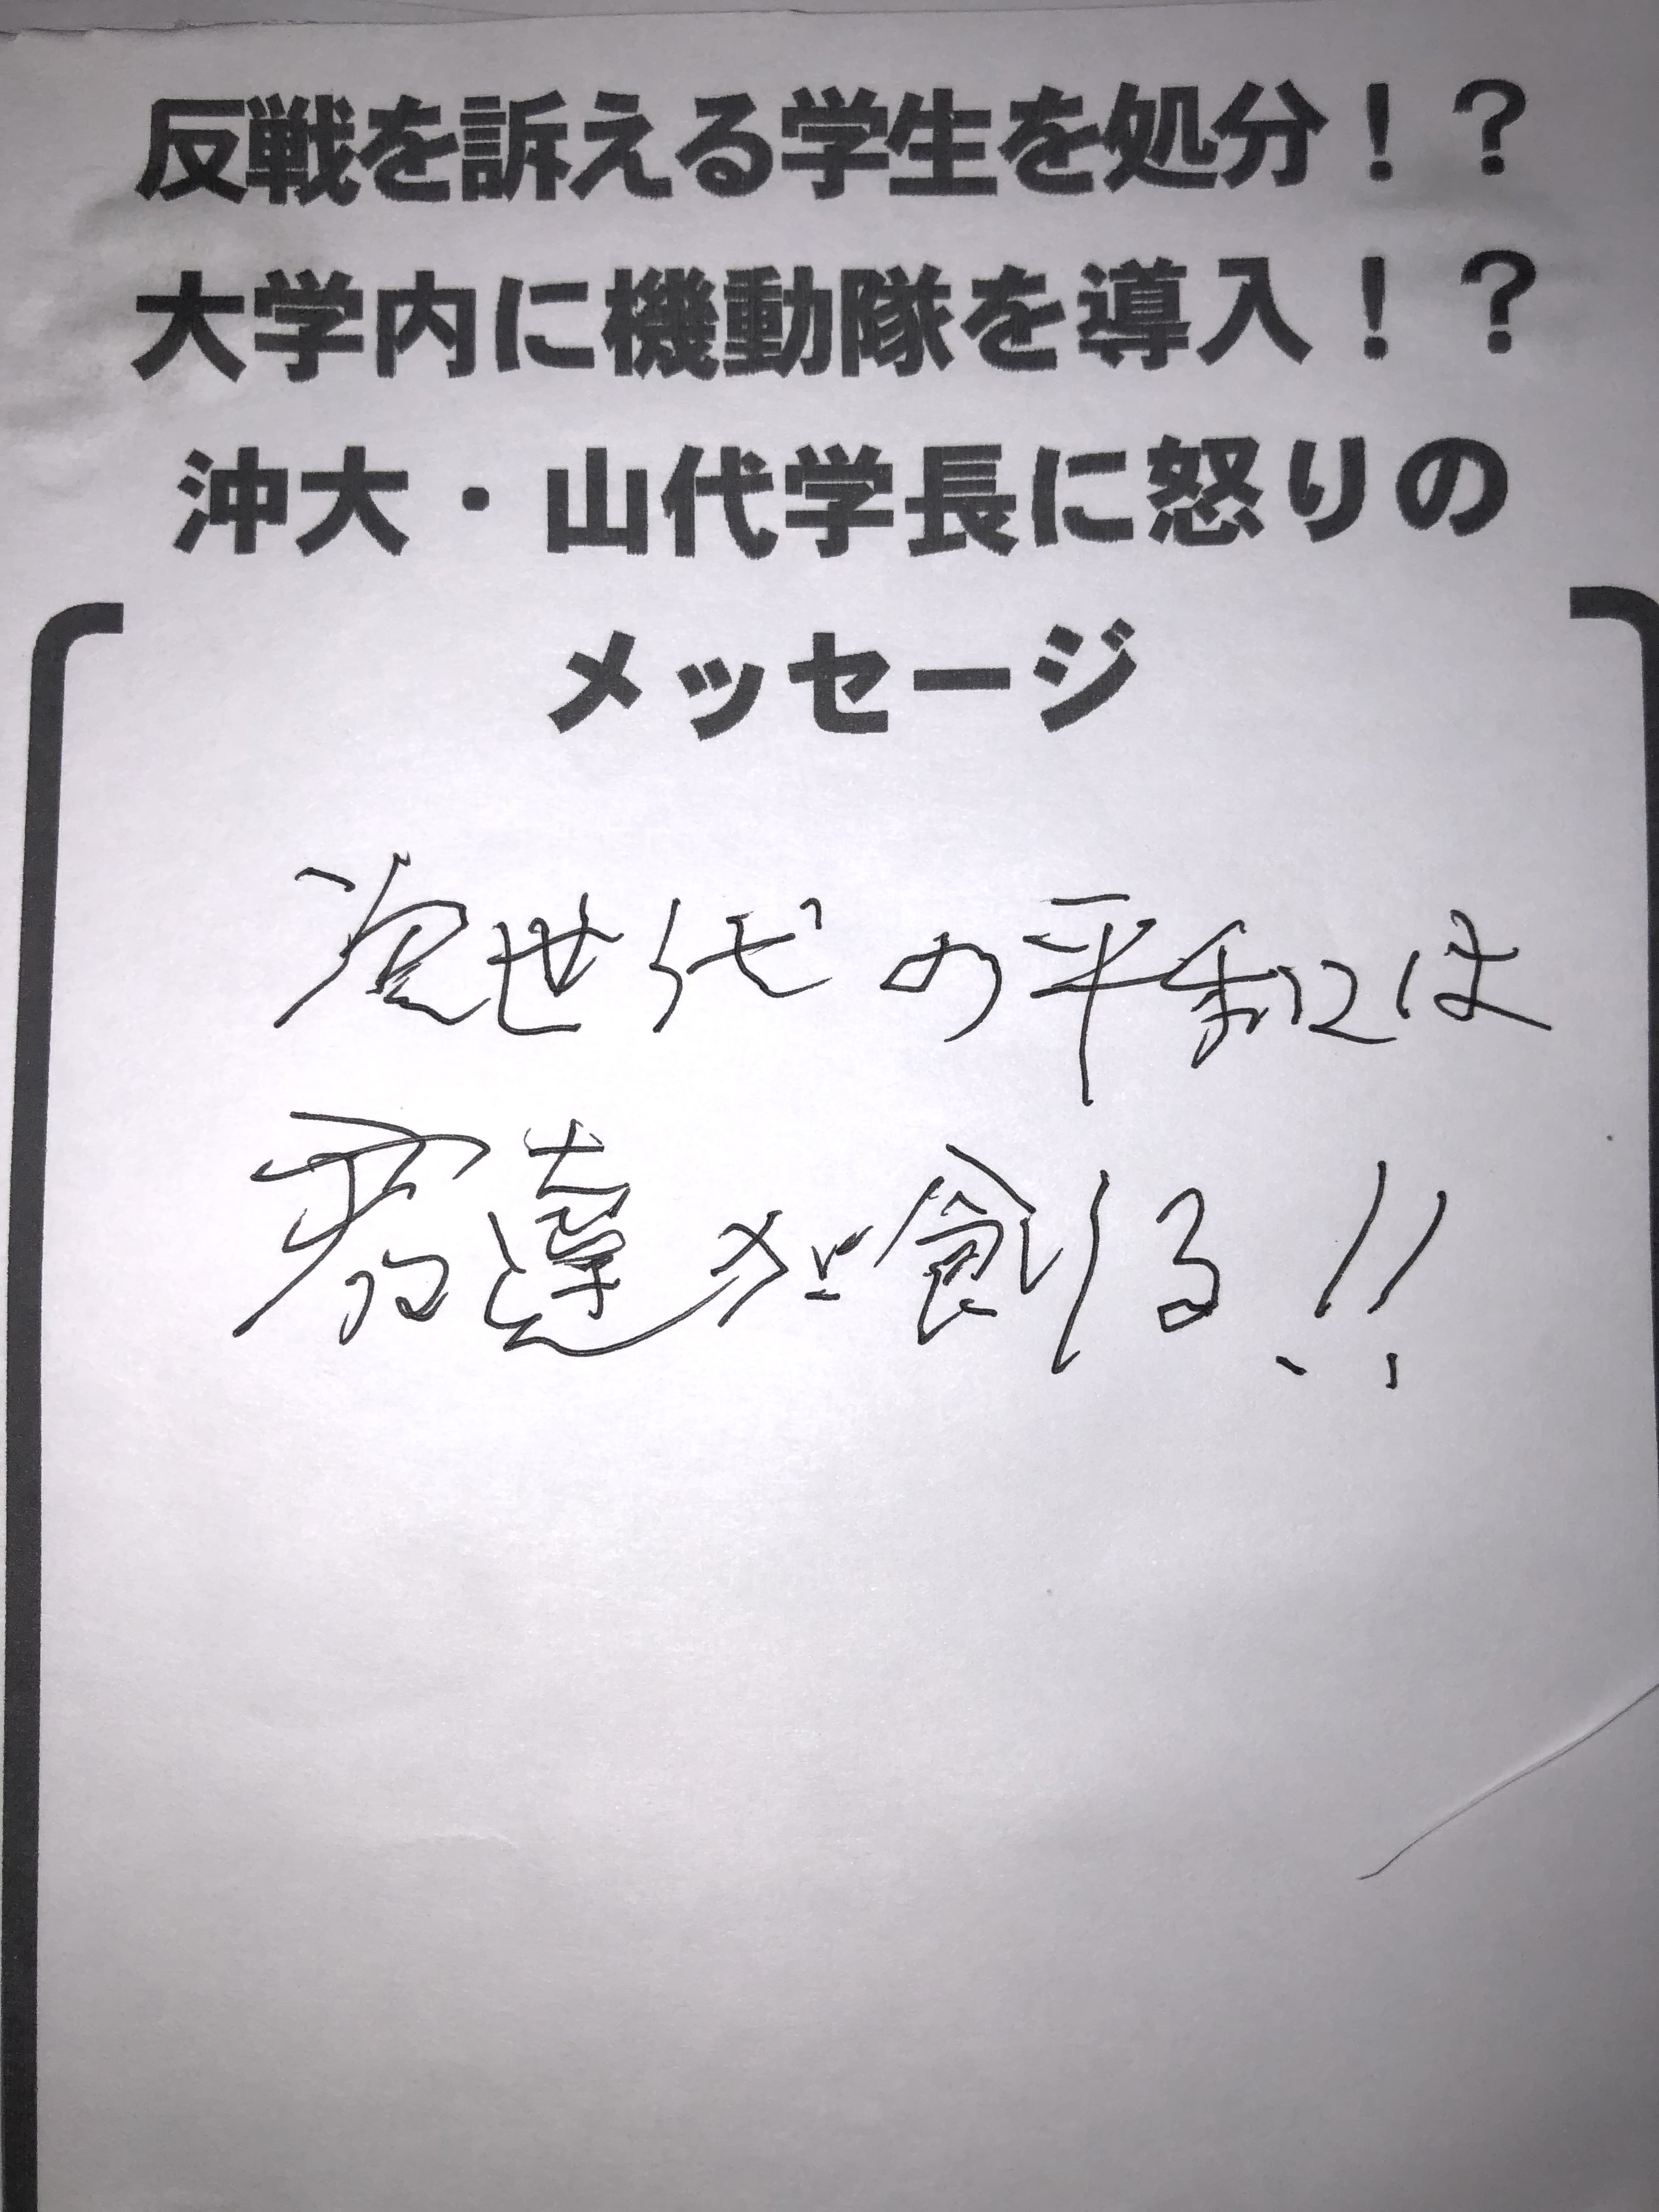 反戦を訴える学生を処分！？
大学内に機動隊を導入！？
沖大・山代学長に怒りの
メッセージ
次世代の平和は
君達が創る!!